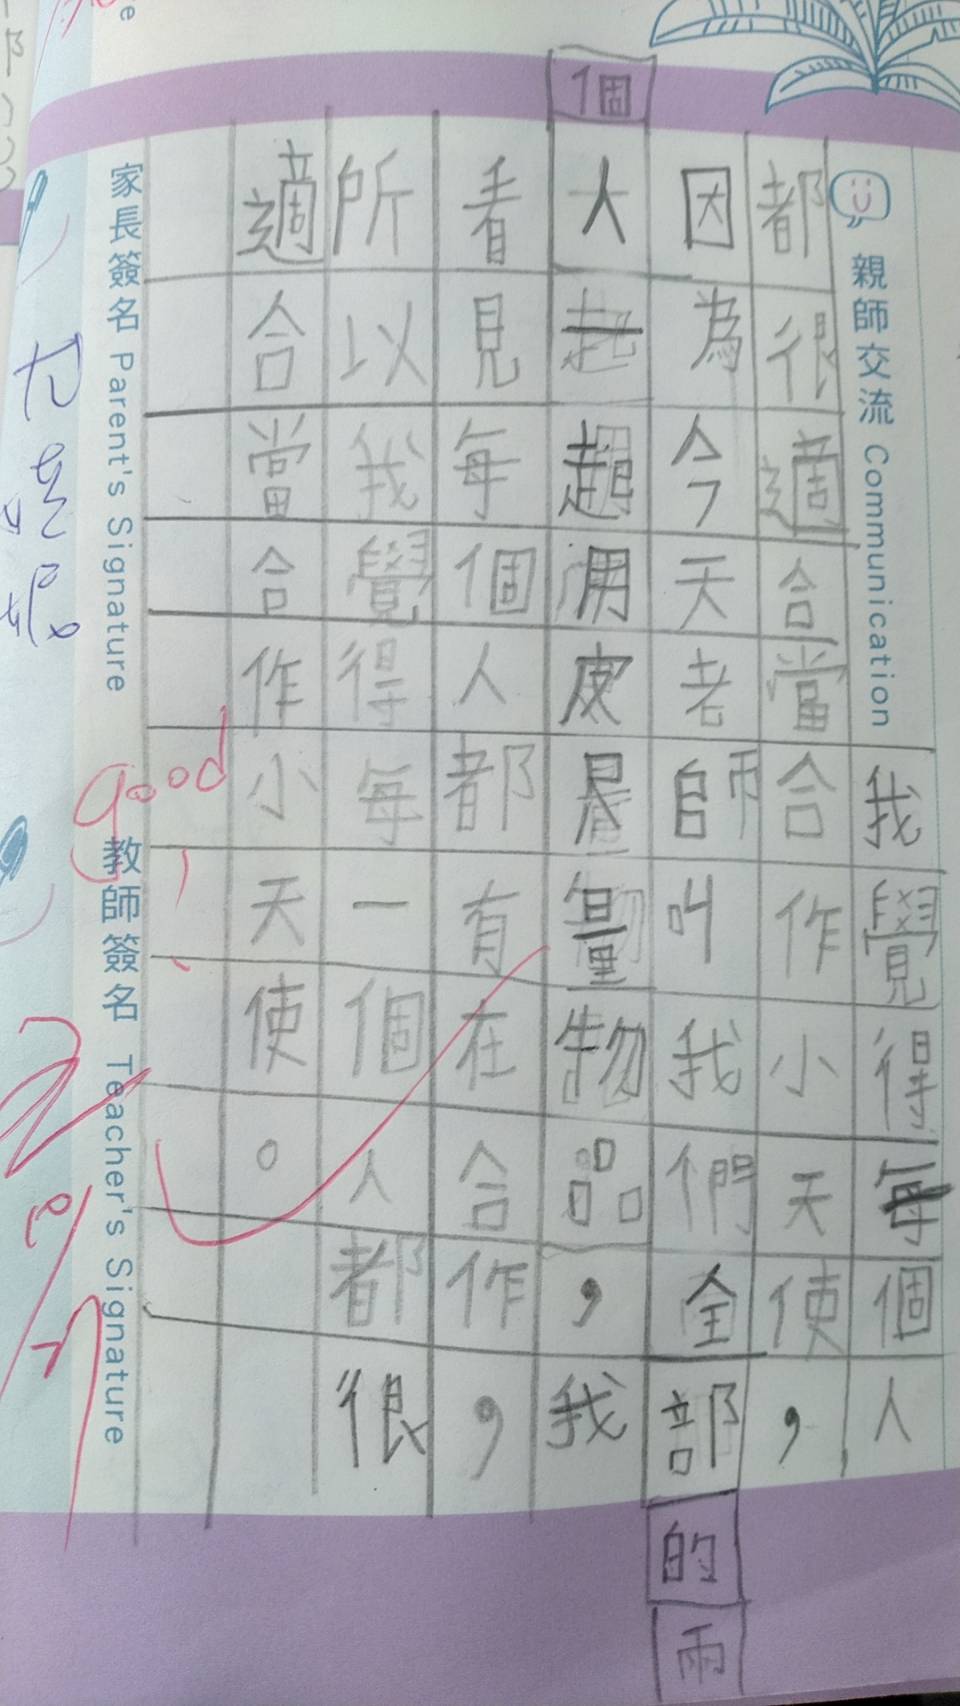 親師交流 Communication
我覺得每個人
都很適合當合作小天使,
因為今天老師叫我們全部的兩
個大趕用皮尺量物品,我
看見每個人都有在合作,
所以我覺得每一個人都很
適合當合作小天使。
good!
家長簽名 Parent's Signature
教師簽名 Teacher's Signature